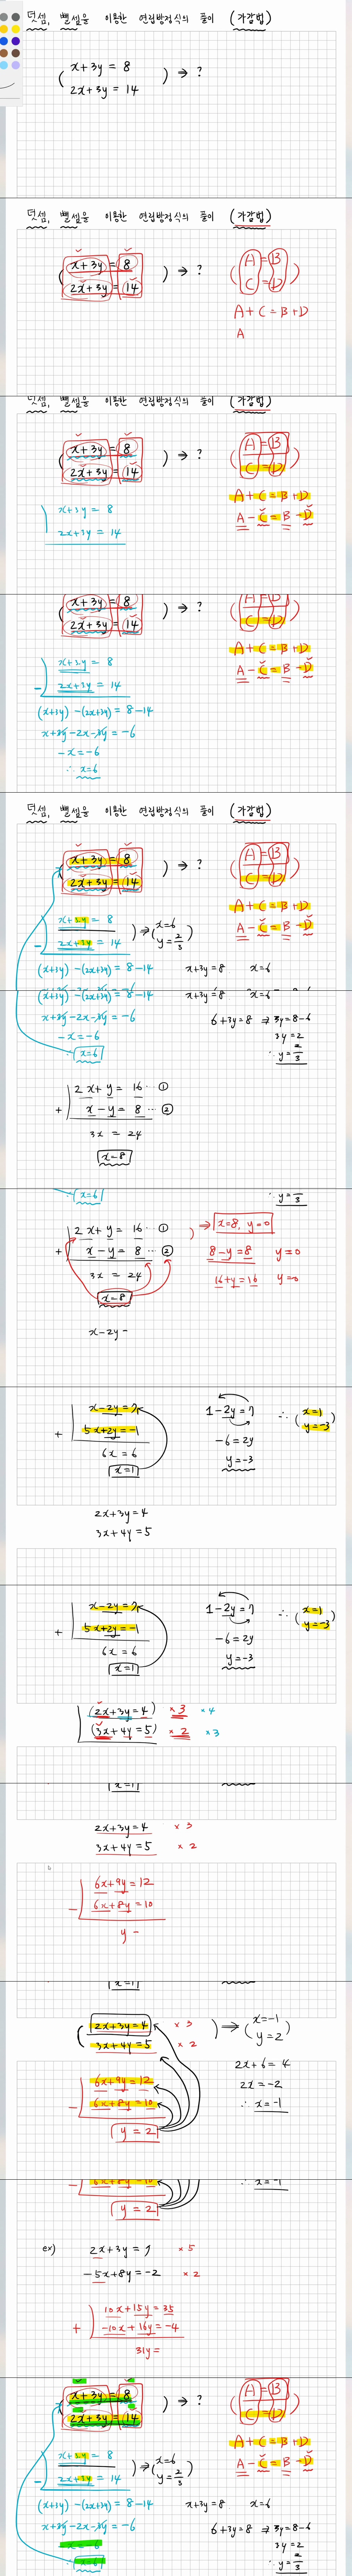 덧셈, 뺄셈을 이용한 연립방정식의 풀이 (가감법)
( x+3y = 8 ) → ?
2x+3y = 14
덧셈, 뺄셈을 이용한 연립방정식의 풀이 (가감법)
( x+3y = 8 ) → ? ( A = B )
2x+3y = 14 C = D
A + C = B + D
A
덧셈, 뺄셈을 이용한 연립방정식의 풀이 (가감법)
( x+3y = 8 ) → ? ( A = B )
2x+3y = 14 C = D
A + C = B + D
x+3y = 8 A - C = B - D
2x+3y = 14
( x+3y = 8 ) → ? ( A = B )
2x+3y = 14 C = D
A + C = B + D
x+3y = 8 A - C = B - D
- 2x+3y = 14
(x+3y) -(2x+3y) = 8-14
x+3y-2x-3y = -6
-x = -6
∴ x=6
덧셈, 뺄셈을 이용한 연립방정식의 풀이 (가감법)
( x+3y = 8 ) → ? ( A = B )
2x+3y = 14 C = D
A + C = B + D
x+3y = 8 ) ⇒ ( x=6 A - C = B - D
- 2x+3y = 14 y= 2/3 )
(x+3y) -(2x+3y) = 8-14 x+3y=8 x=6
(x+3y) -(2x+3y) = 8-14 x+3y=8 x=6
x+3y-2x-3y = -6 6+3y=8 ⇒ 3y=8-6
-x = -6 3y=2
∴ x=6 ∴ y= 2/3
2x+y = 16 … ①
+ x-y = 8 … ②
3x = 24
x=8
∴ x=6 ∴ y= 2/3
2x+y = 16 … ① ) ⇒ x=8, y=0
+ x-y = 8 … ② 8-y=8 y=0
3x = 24 16+y=16 y=0
x=8
x-2y =
x-2y=7 1-2y=7 ∴ ( x=1
+ 5x+2y=-1 -6=2y y=-3 )
6x=6 y=-3
x=1
2x+3y=4
3x+4y=5
x-2y=7 1-2y=7 ∴ ( x=1
+ 5x+2y=-1 -6=2y y=-3 )
6x=6 y=-3
x=1
(2x+3y=4) ×3 ×4
(3x+4y=5) ×2 ×3
x=1
2x+3y=4 ×3
3x+4y=5 ×2
6x+9y=12
- 6x+8y=10
y =
x=1
( 2x+3y=4 ×3 ) ⇒ ( x=-1
3x+4y=5 ×2 y=2 )
6x+9y=12 2x+6=4
- 6x+8y=10 2x=-2
y=2 ∴ x=-1
- 6x+8y=10 ∴ x=-1
y=2
ex) 2x+3y=7 ×5
-5x+8y=-2 ×2
10x+15y=35
+ -10x+16y=-4
31y=
( x+3y = 8 ) → ? ( A = B )
2x+3y = 14 C = D
A + C = B + D
x+3y = 8 ) ⇒ ( x=6 A - C = B - D
- 2x+3y = 14 y= 2/3 )
(x+3y) -(2x+3y) = 8-14 x+3y=8 x=6
x+3y-2x-3y = -6 6+3y=8 ⇒ 3y=8-6
-x = -6 3y=2
∴ x=6 ∴ y= 2/3